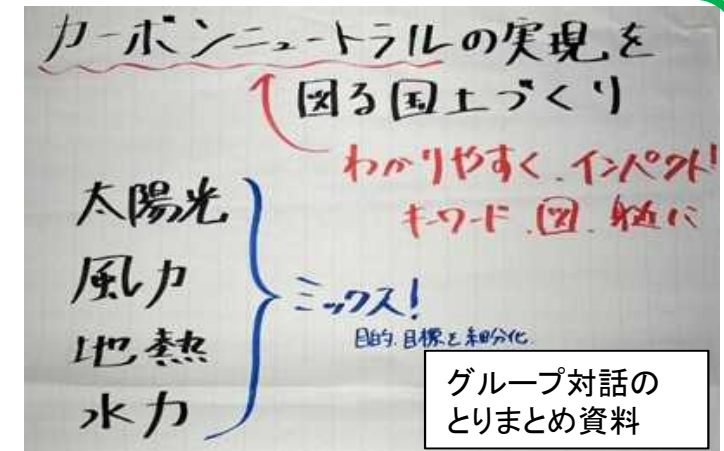 カーボンニュートラルの実現を
図る国土づくり
わかりやすく、インパクト!
キーワード、図、身近に
太陽光
風力
地熱
水力
ミックス!
目的、目標を細分化
グループ対話の
とりまとめ資料